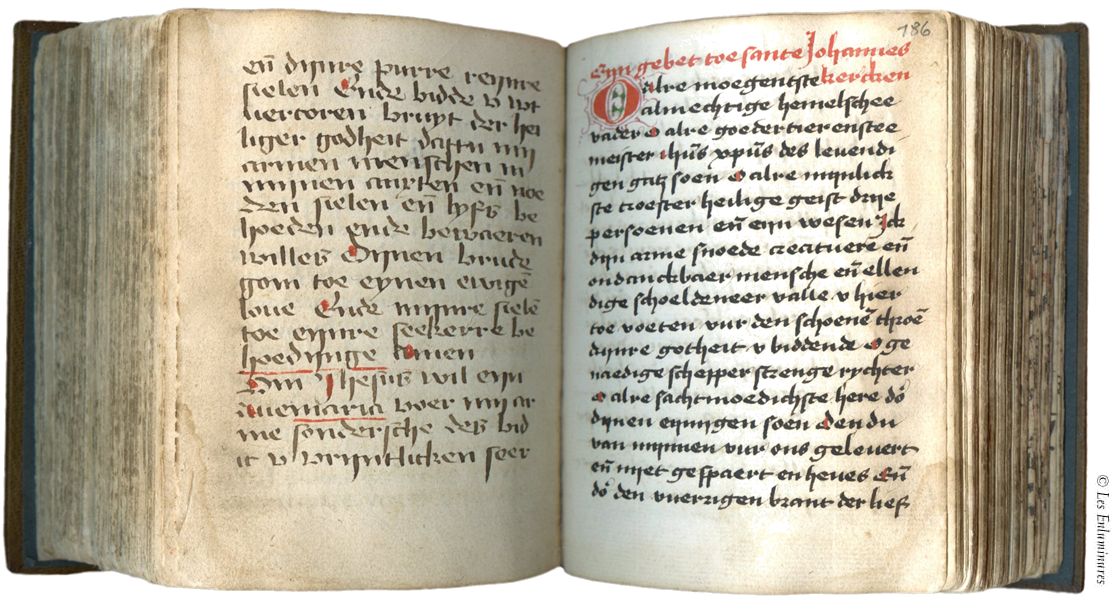 en̄ dijnre purre reynre
sielen Ende bidde v wt
vercoren bruyt der hei
liger godheit dattu mij
armen menschen in
mijnen aurten en̄ noe
den sielen en̄ lyfs be
hoeden ende bewaeren
willes Dijnen brude
gom toe eynen ewigē
loue Ende mijnre sielē
toe eynre seekerre be
hoedijnge Amen
Om Jhesus wil eyn
auemaria voer mij ar
me sondersche des bid
ic v vrijntlicken seer
186
Eyn gebet toe sante Johannes
O alre moegentste kercken
almechtige hemelschee
vader O alre goedertierenstee
meister ihūs xpūs des leuendi
gen gatz soen O alre mynlick
ste troester heilige geist drije
persoenen en̄ eyn wesen Ick
dyn arme snoede creatuere en̄
ondanckbaer mensche en̄ ellen
dige schoeldeneer valle v hier
toe voeten vur den schoenē throē
dijnre gotheit v biddende O ge
naedige schepper strenge rychter
O alre sachtmoedichste here do͛
dijnen eynygen soen Den du
van mynnen vur ons geleuert
en̄ niet gespaert en heues En̄
do͛ den vuerrigen brant der lief
© Les Enluminures